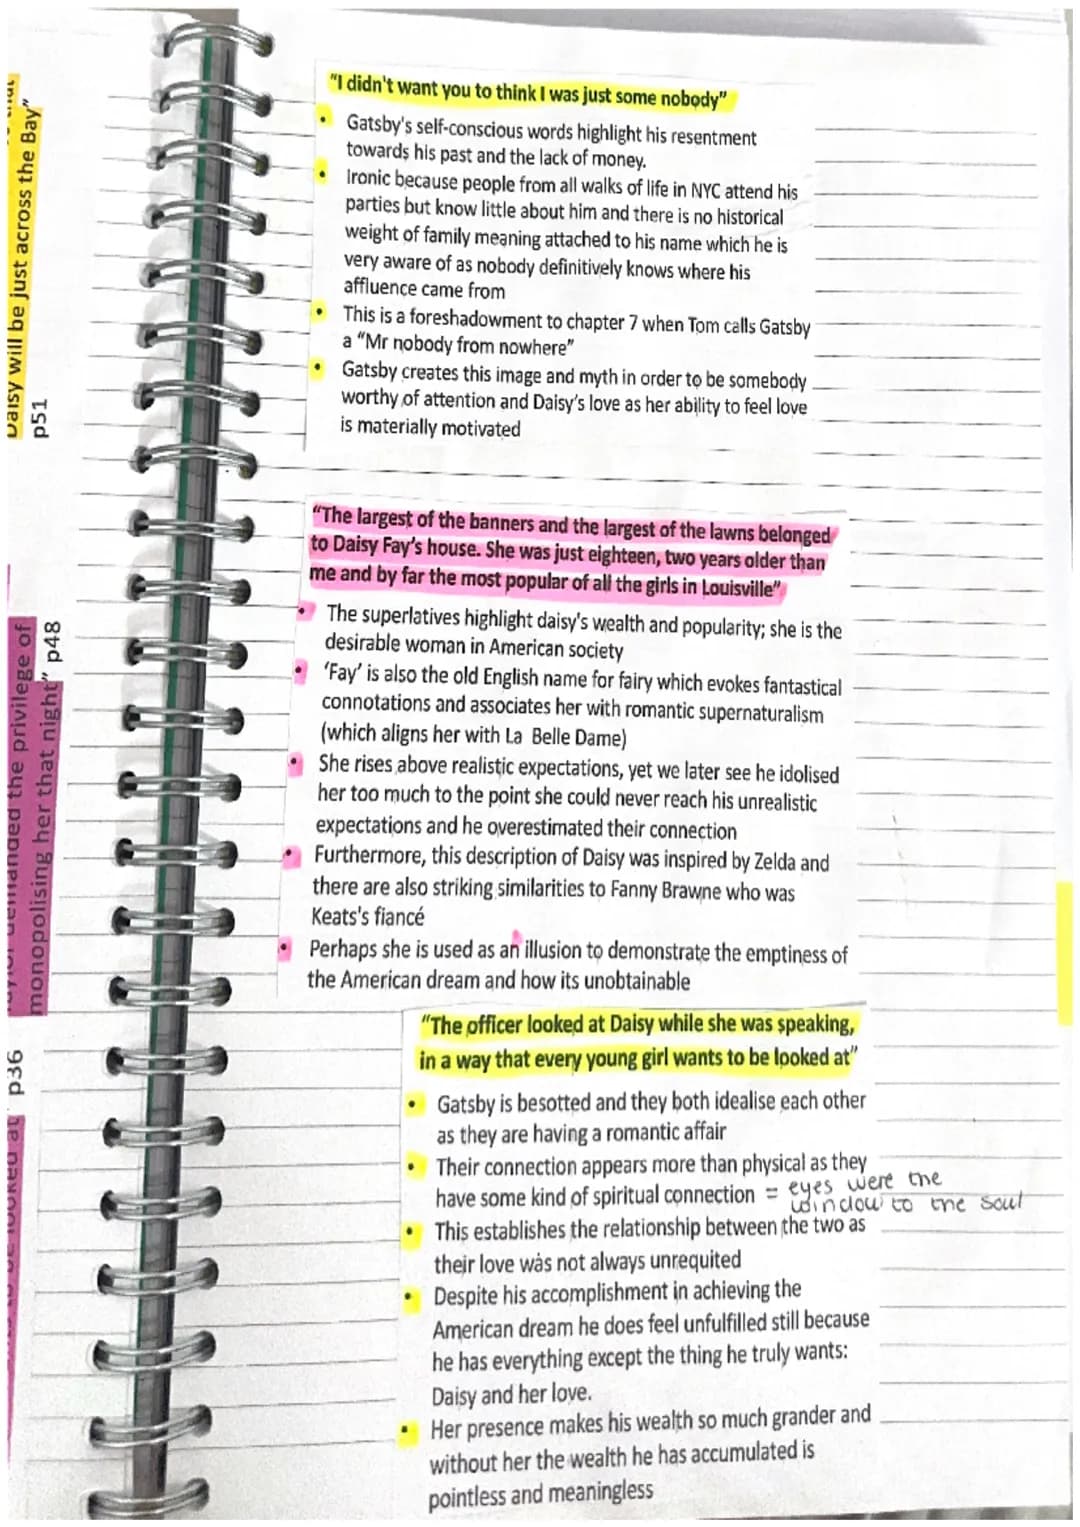 "I didn't want you to think I was just some nobody"
• Gatsby's self-conscious words highlight his resentment
towards his past and the lack of money.
• Ironic because people from all walks of life in NYC attend his
parties but know little about him and there is no historical
weight of family meaning attached to his name which he is
very aware of as nobody definitively knows where his
affluence came from
• This is a foreshadowment to chapter 7 when Tom calls Gatsby
a "Mr nobody from nowhere"
• Gatsby creates this image and myth in order to be somebody
worthy of attention and Daisy's love as her ability to feel love
is materially motivated
"The largest of the banners and the largest of the lawns belonged
to Daisy Fay's house. She was just eighteen, two years older than
me and by far the most popular of all the girls in Louisville"
• The superlatives highlight daisy's wealth and popularity; she is the
desirable woman in American society
• 'Fay' is also the old English name for fairy which evokes fantastical
connotations and associates her with romantic supernaturalism
(which aligns her with La Belle Dame)
• She rises above realistic expectations, yet we later see he idolised
her too much to the point she could never reach his unrealistic
expectations and he overestimated their connection
• Furthermore, this description of Daisy was inspired by Zelda and
there are also striking similarities to Fanny Brawne who was
Keats's fiancé
• Perhaps she is used as an illusion to demonstrate the emptiness of
the American dream and how its unobtainable
"The officer looked at Daisy while she was speaking,
in a way that every young girl wants to be looked at"
• Gatsby is besotted and they both idealise each other
as they are having a romantic affair
• Their connection appears more than physical as they
have some kind of spiritual connection = eyes were the
window to the soul
• This establishes the relationship between the two as
their love was not always unrequited
• Despite his accomplishment in achieving the
American dream he does feel unfulfilled still because
he has everything except the thing he truly wants:
Daisy and her love.
• Her presence makes his wealth so much grander and
without her the wealth he has accumulated is
pointless and meaningless
Daisy will be just across the Bay"
p51
demanded the privilege of
monopolising her that night" p48
to be looked at p36